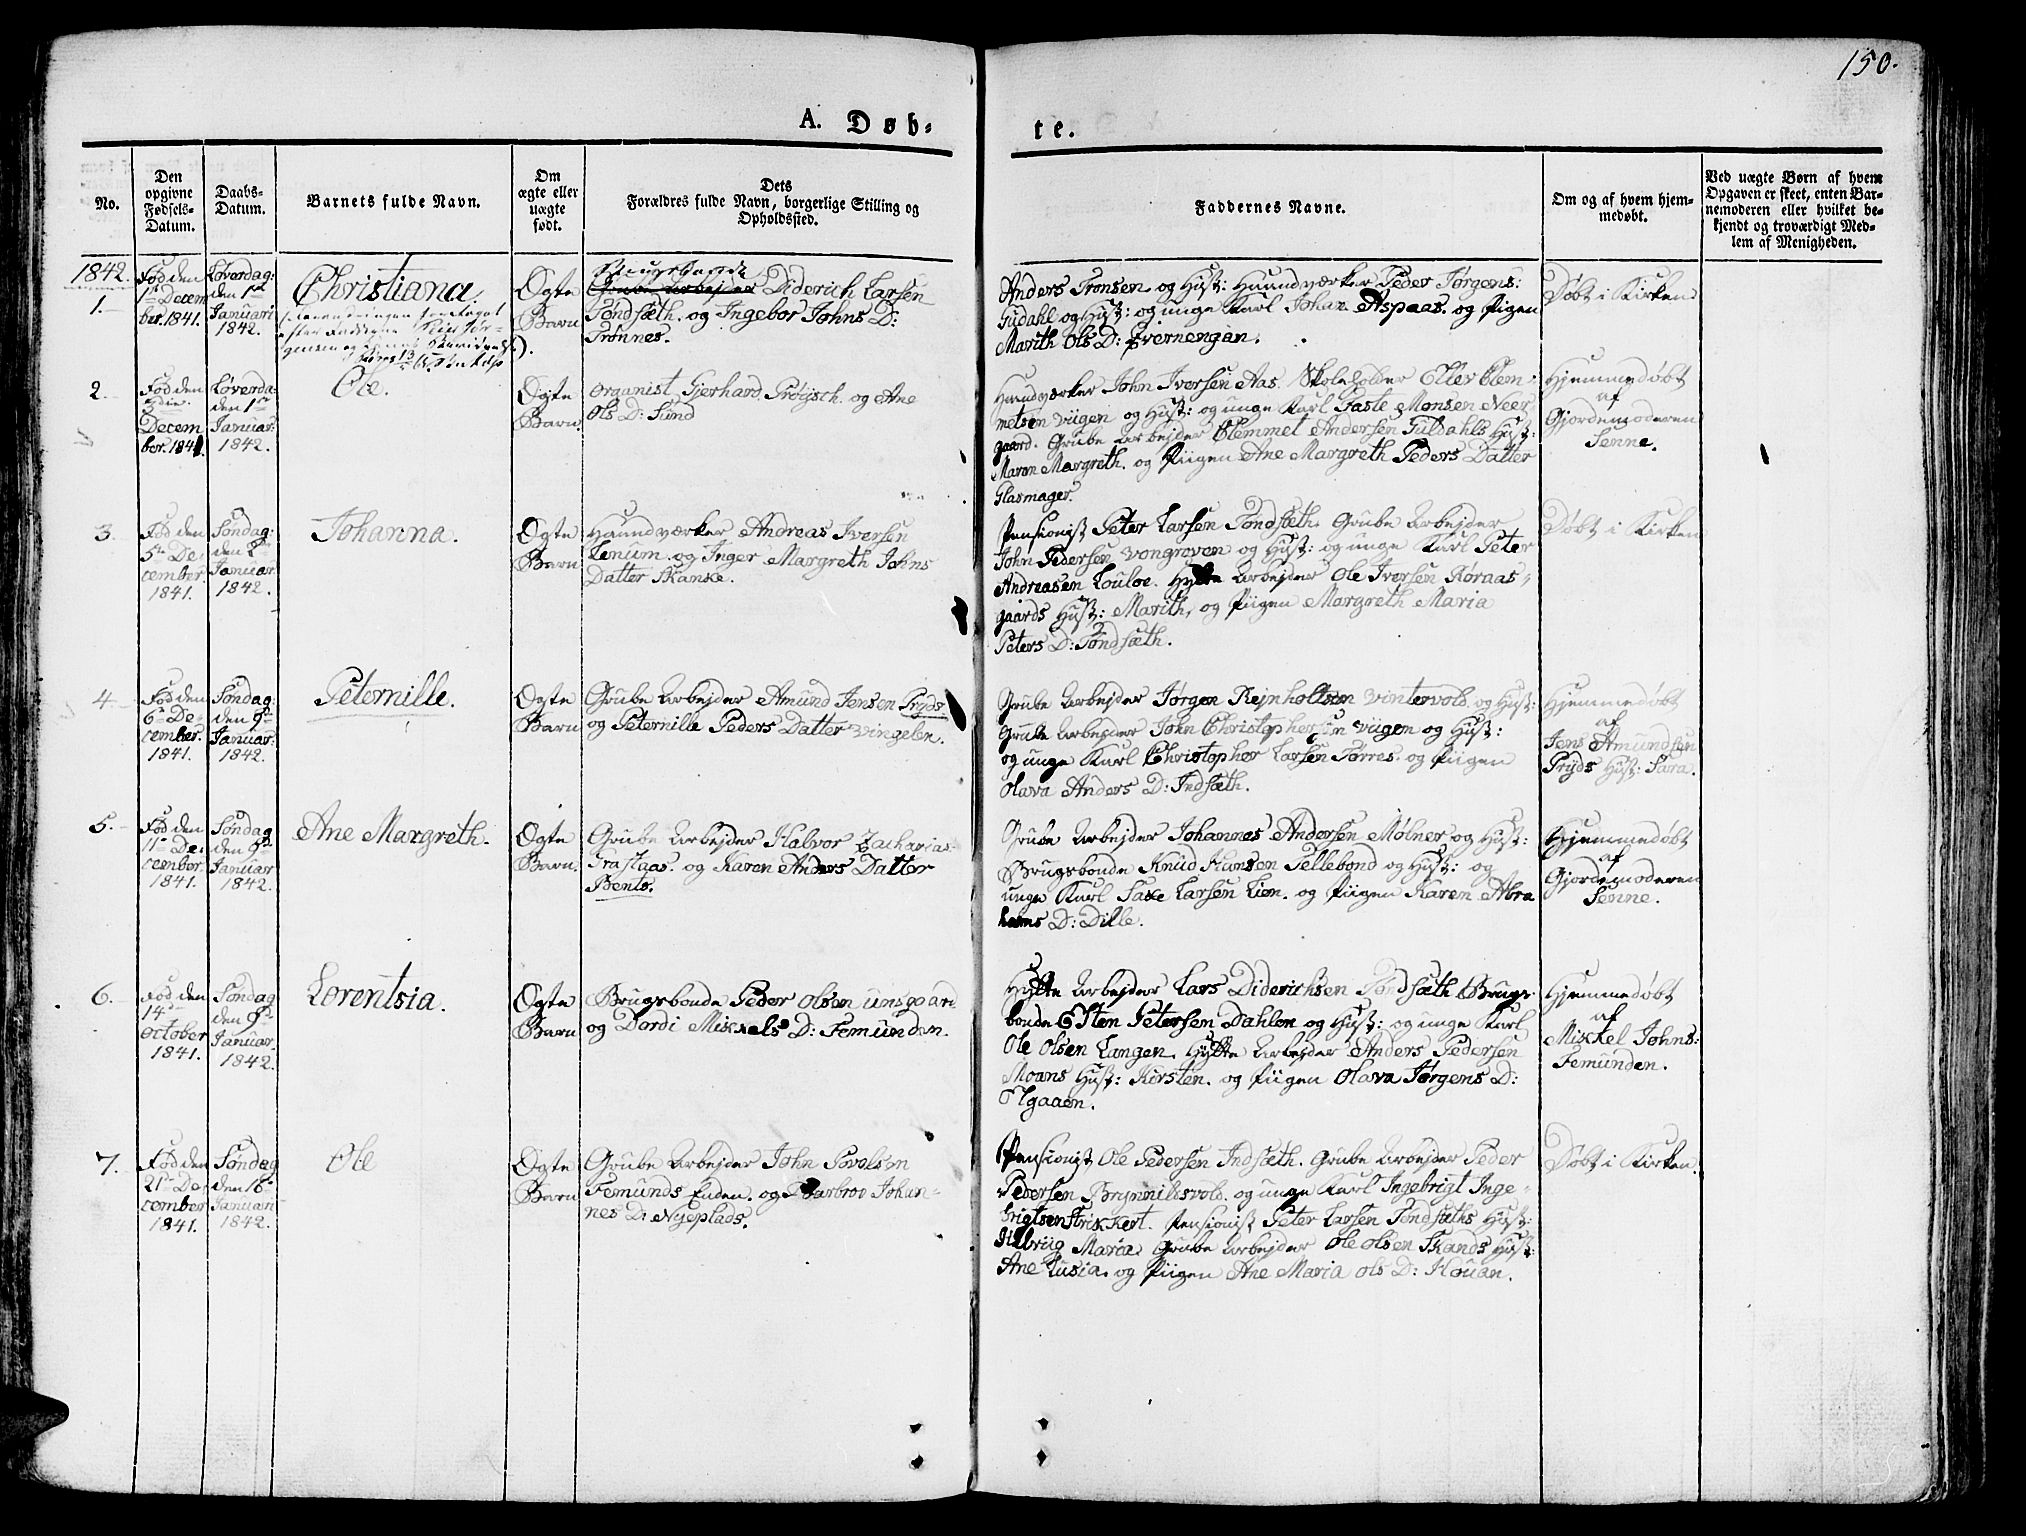 150.
A. Døb-
te.
No.
Den opgivne Fødsels-Datum.
Daabs-Datum.
Barnets fulde Navn.
Om ægte eller uægte født.
Dets Forældres fulde Navn, borgerlige Stilling og Opholdssted.
Faddernes Navne.
Om og af hvem hjem-medøbt.
Ved uægte Børn af hvem Opgaven er skeet, enten Bar-nemoderen eller hvilket be-kjendt og troværdigt Med-lem af Menigheden.
1842.
1.
Fød den
1ste Decem
ber. 1841.
Løverdag:
den 1ste
Januari
1842.
Christiana.
Ægte
Barn
Grube Arbejder Diderich Larsen
Tøndsæth. og Ingebor Johns D:
Trønnes.
Anders Tronsen og Hust: Haandværker Peder Jørgens:
Guldahl og Hust: og unge Karl Johan Aspaas. og Pigen
Marith Ols D: Qvernengan.
Døbt i Kirken
2.
Fød den
Decem
ber. 1841.
Løverda:
den 1ste
Januar:
1842.
Ole.
Ægte
Barn
Organist Gjerhard Prøÿsch. og Ane
Ols D: Sund
Haandværker John Iversen Aas. Skoleholder Ellev Clem-
metsen Viigen og Hust: og unge Karl Faste Monsen Neer
gaard. Grube Arbejder Clemmet Andersen Guldahls Hust:
Maren Margreth. og Piigen Ane Margreth Peders Datter
Glasmager.
Hjemmedøbt
af
Gjordemoderen
Senne.
3.
Fød den
5te De-
cember.
1841.
Søndag:
den 2den
Januar
1842.
Johanna.
Ægte
Barn
Haandværker Andreas Iversen
Lenum. og Inger Margreth Johns
Datter Skanke.
Pensionist Peter Larsen Tøndsæth. Grube Arbejder
John Pedersen Vongraven og Hust: og unge Karl Peter
Andreasen Louloe. Hytte Arbejder Ole Iversen Røraas-
gaards Hust: Marith, og Piigen Margreth Maria
Peters D: Tøndsæth.
Døbt i Kirken
4.
Fød den
6te De-
cember.
1841.
Søndag
den 9de
Januar:
1842.
Peternille.
Ægte
Barn
Grube Arbejder Amund Jensen Pryds
og Peternille Peders Datter Vingelen.
Grube Arbejder Jørgen Rejnholtsen Vintervold. og Hust:
Grube Arbejder John Christophersen Viigen og Hust:
og unge Karl Christopher Larsen Tørres. og Piigen
Olava Anders D: Indsæth.
Hjemmedøbt
af
Jens Amundsen
Pryds Hust: Sara.
5.
Fød den
11te De-
cember.
1841.
Søndag
den 9de
Januar
1842.
Ane Margreth.
Ægte
Barn.
Grube Arbejder Halvor Zacharias-
Graftaas. og Karen Anders Datter
Bents.
Grube Arbejder Johannes Andersen Mølner og Hust:
Brugsbonde Knud Hansen Pellebond og Hust: og
unge Karl Saxe Larsen Lien. og Piigen Karen Abra
hams D: Dille.
Hjemmedøbt
af
Gjordemoderen
Senne.
6.
Fød den
14de
October
1841.
Søndag
den 9de
Januar
1842.
Lorentsia.
Ægte
Barn
Brugsbonde Peder Olsen Unsgoard
og Dordi Mikkels D: Femunden.
Hytte Arbejder Lars Diderichsen Tøndsæth. Brugs-
bonde Esten Petersen Dahlen og Hust: og unge Karl
Ole Olsen Langen. Hytte Arbejder Anders Pedersen
Moans Hust: Kirsten. og Piigen Olava Jørgens D:
Elgaaen.
Hjemmedøbt
af
Mikkel Johns:
Femunden.
7.
Fød den
21de De-
cember
1841.
Søndag
den 16de
Januari
1842.
Ole
Ægte
Barn
Grube Arbejder John Povelsen
Femunds Enden. og Barbroe Johan-
nes D: Nyeplads.
Pensionist Ole Pedersen Indsæth. Grube Arbejder Peder
Pedersen Brynnilsvold. og unge Karl Ingebrigt Inge-
brigtsen Strikkert. Pensionist Peter Larsen Tøndsæths Hust:
Ane Lusia. og Piigen Ane Maria Ols D: Houan.
Døbt i Kirken.